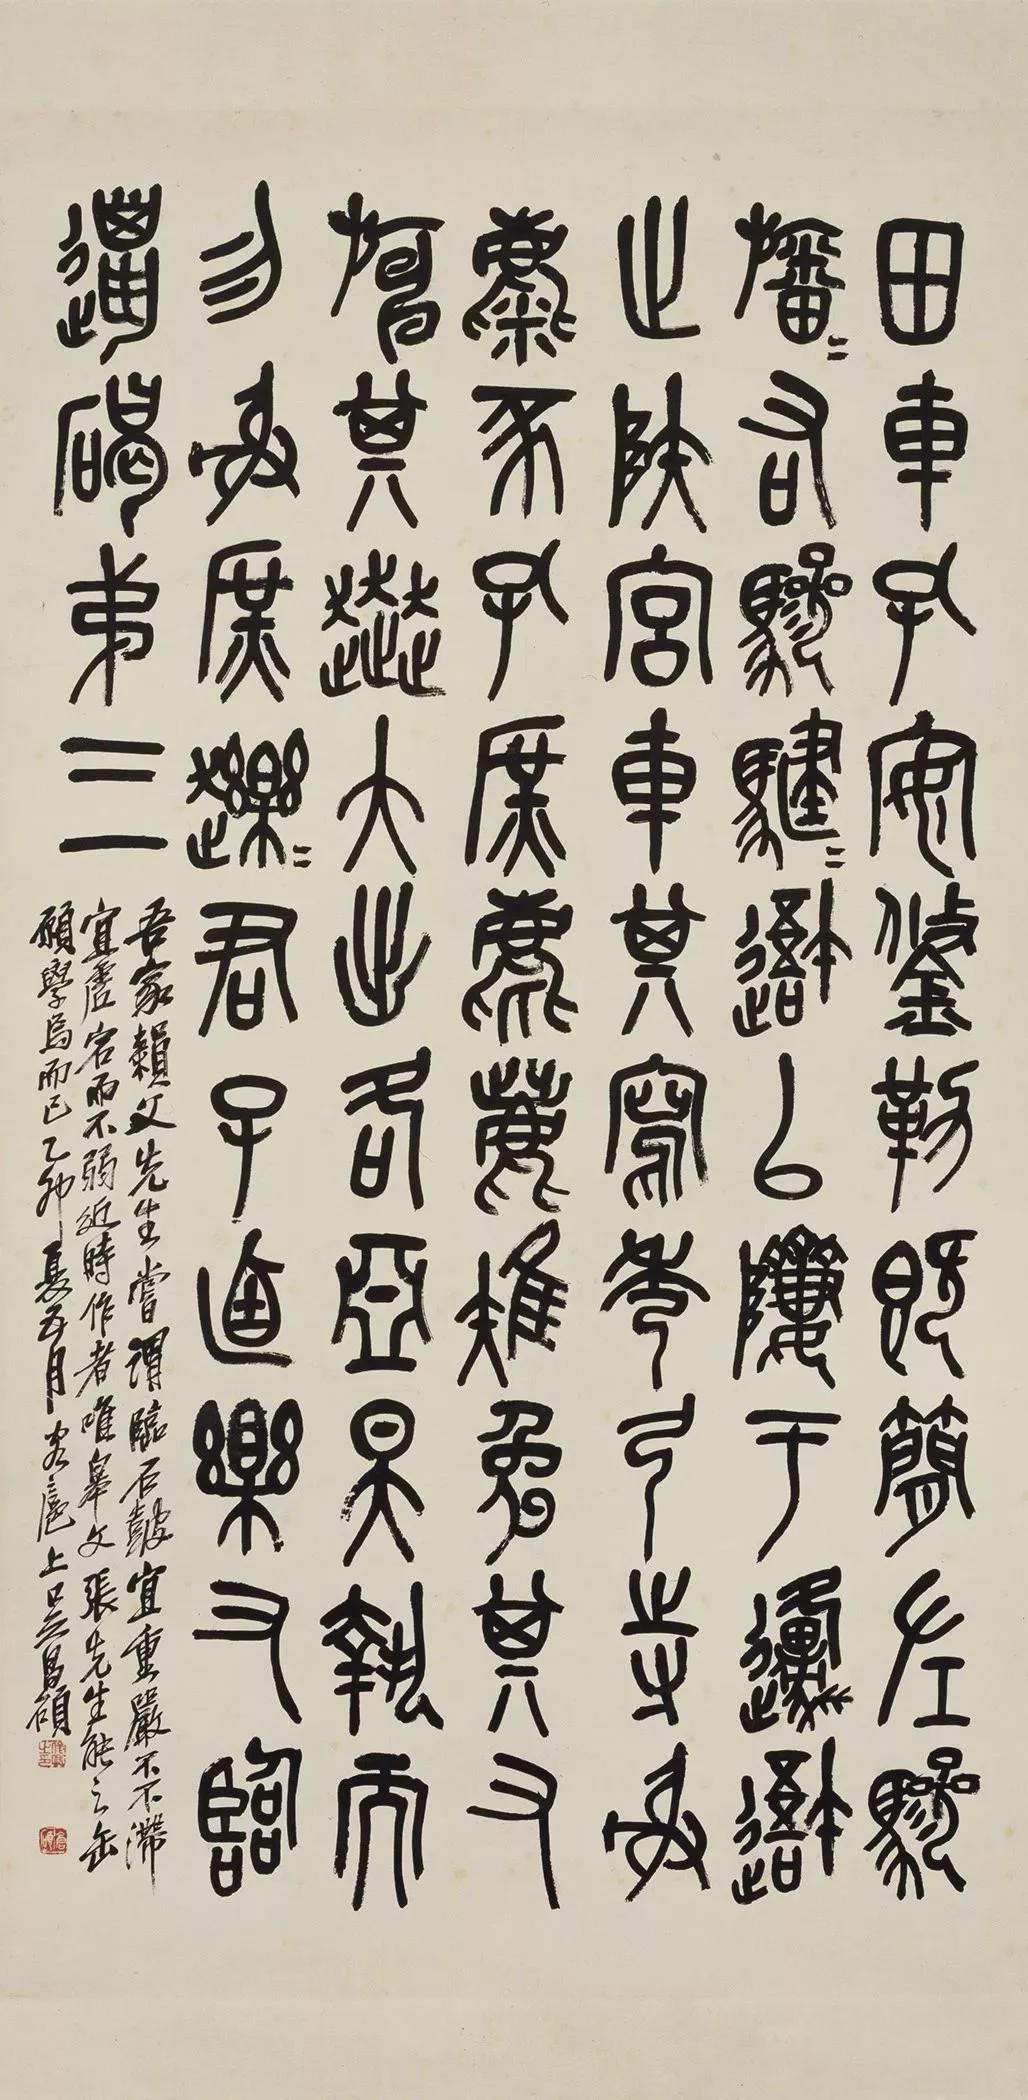 田車孔安鋚勒既簡左驂
旛=右驂騝=以隮于邍
止陝宮車其寫秀弓寺射
麋豕孔庶麀鹿雉兔其又
其大出各亞昊執而
勿射庶趯=君子逌樂又臨
邋碣弟三
吾家先生嘗謂臨石鼓宜重嚴而不滯
宜虛宕而不弱近時作者唯皋文張先生能之缶
願學焉而已乙卯夏五月客滬上吳昌碩